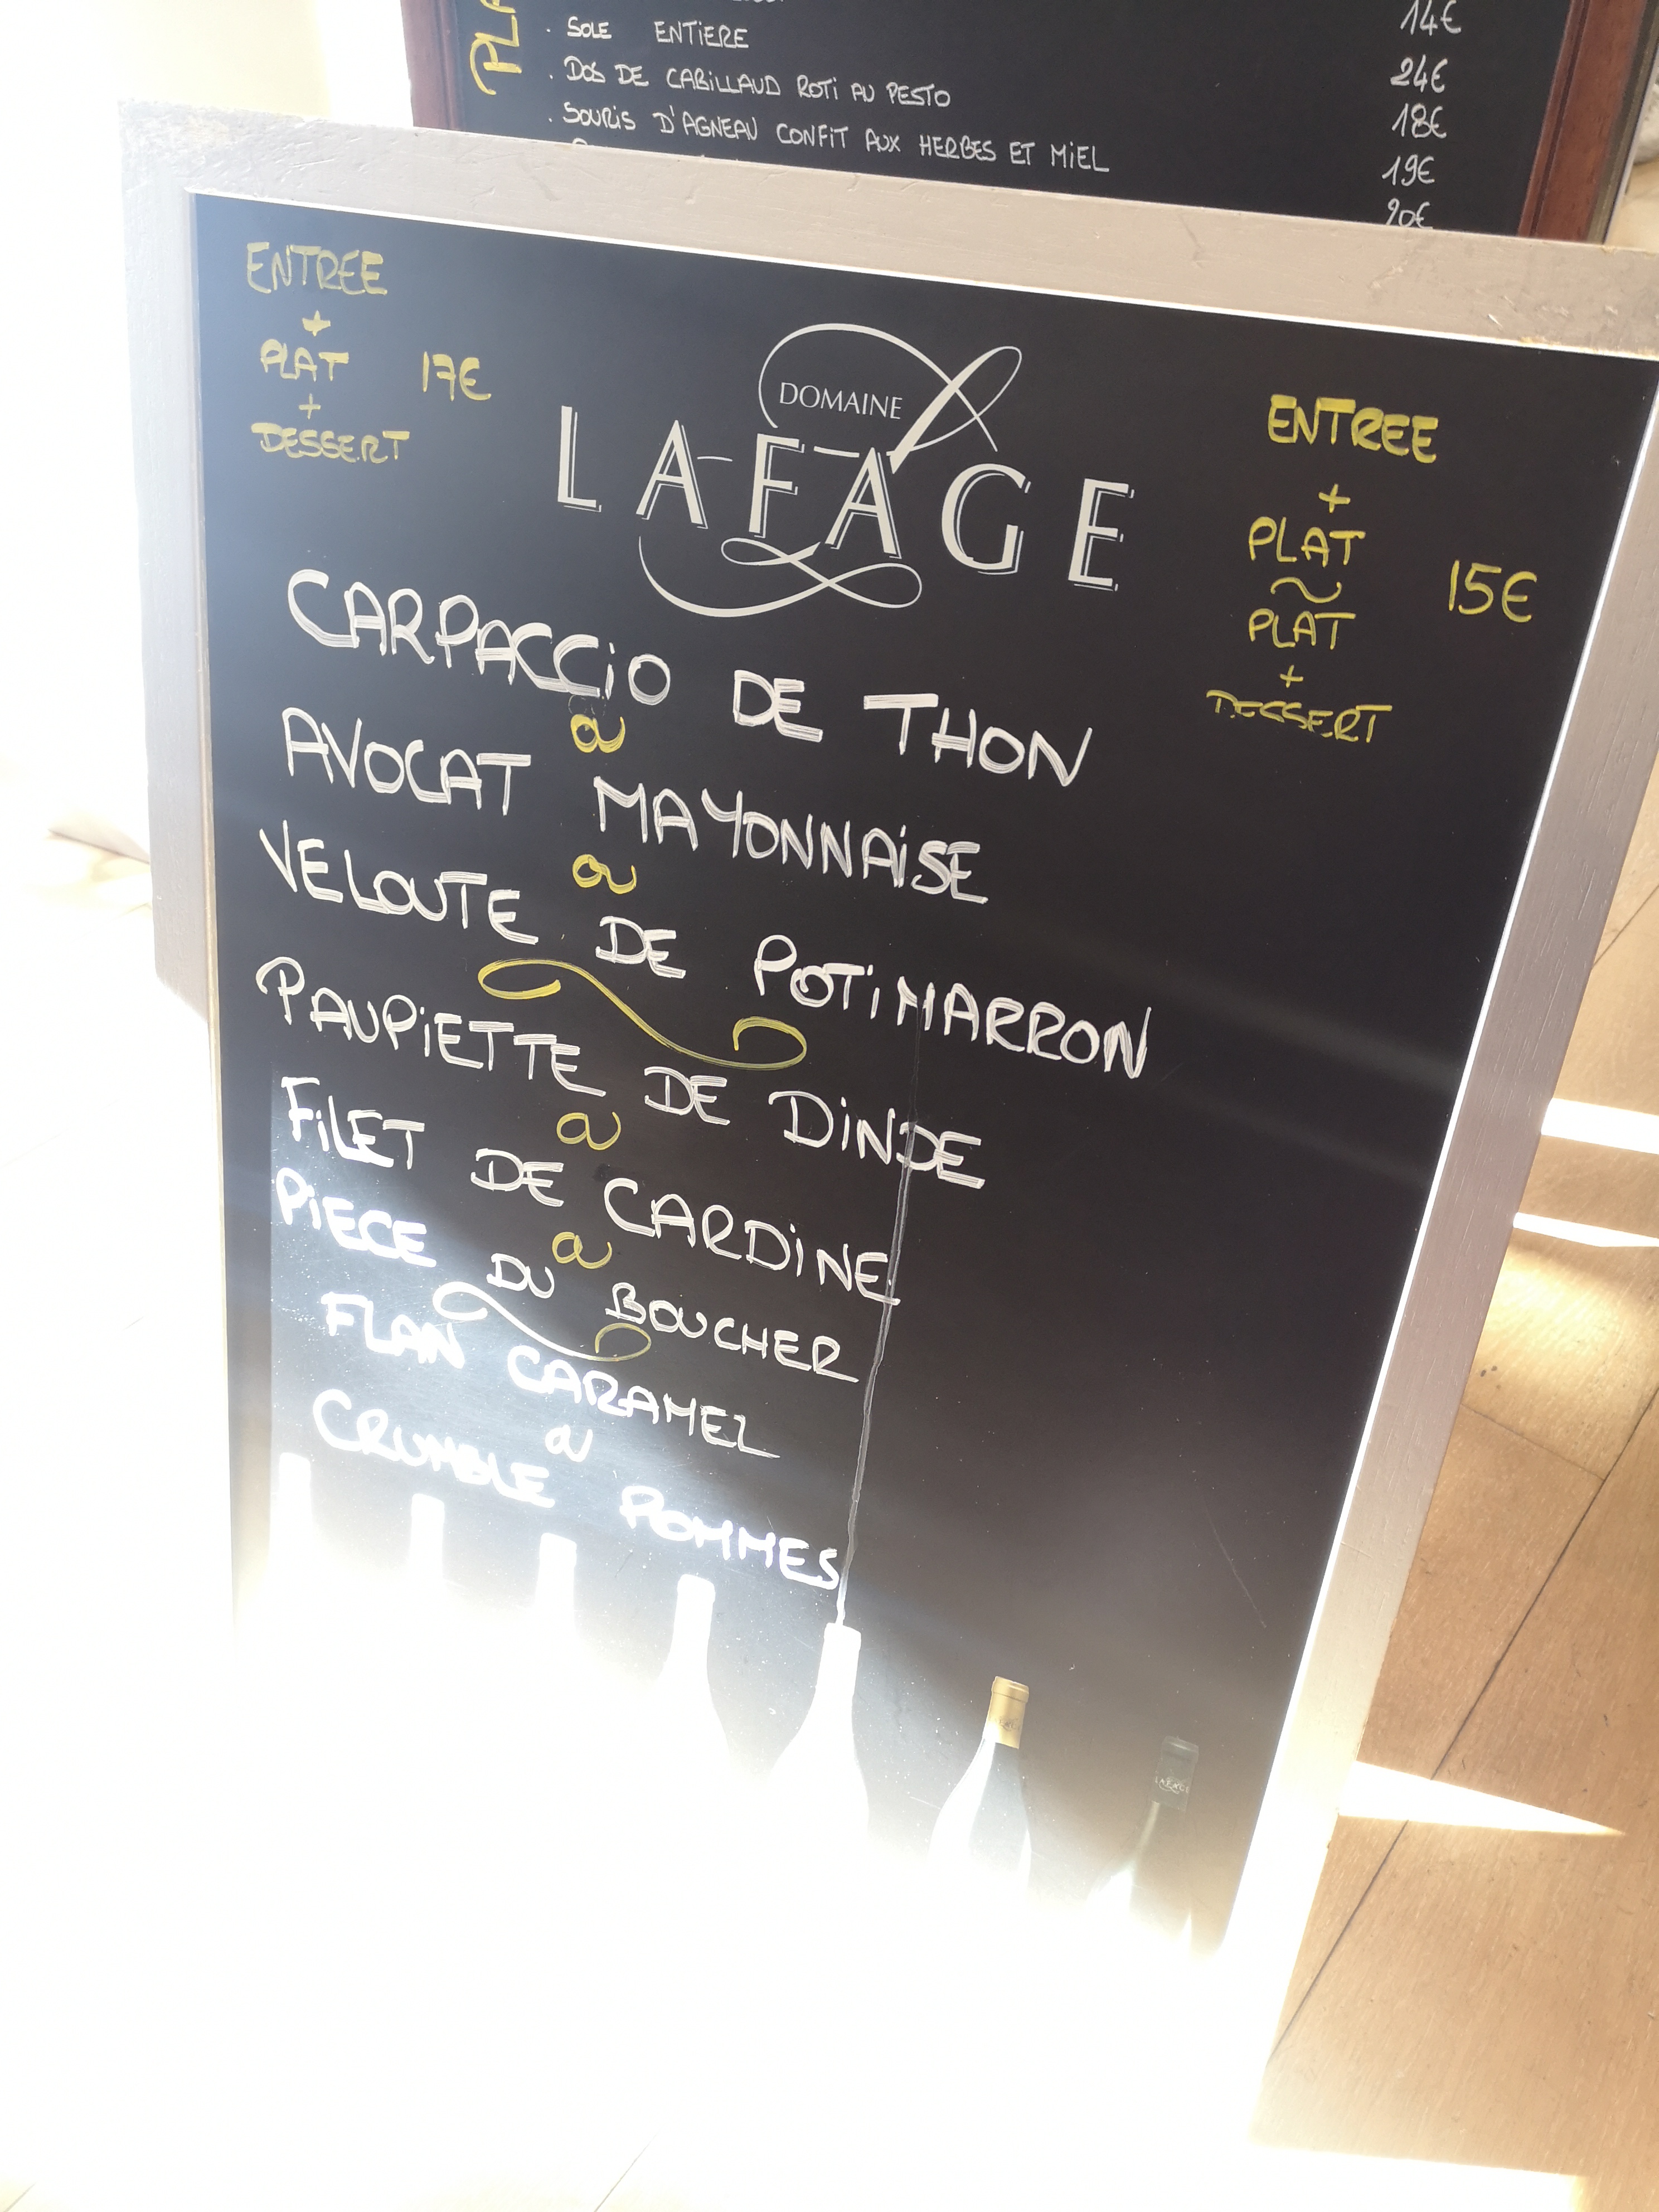 PLA
14€
. SOLE ENTIERE 24€
. DOS DE CABILLAUD ROTI AU PESTO 18€
. SOURIS D'AGNEAU CONFIT AUX HERBES ET MIEL 19€
20€
ENTREE
+
PLAT 17€
+
DESSERT
DOMAINE
LAFAGE
ENTREE
+
PLAT
~
PLAT
+
DESSERT
15€
CARPACCiO DE THON
ou
AVOCAT MAYONNAiSE
ou
VELOUTE DE POTiMARRON
PAUPiETTE DE DiNDE
ou
FiLET DE CARDiNE
ou
PiECE DU BOUCHER
FLAN CARAMEL
ou
CRUMBLE POMMES